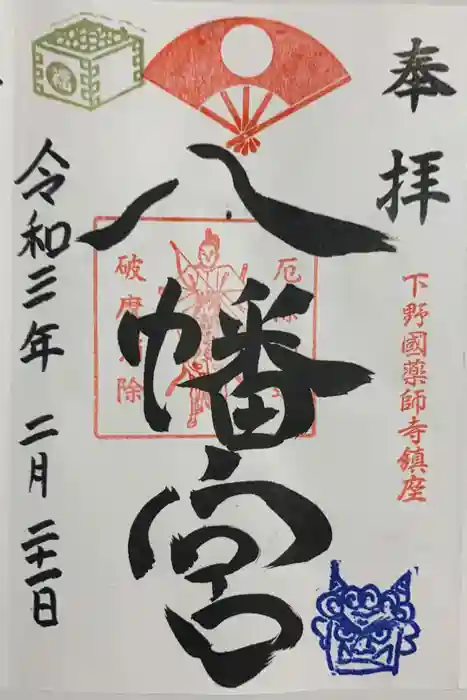 奉拝
下野國薬師寺鎮座
八幡宮
破魔
除
厄除
令和三年 二月 二十一日